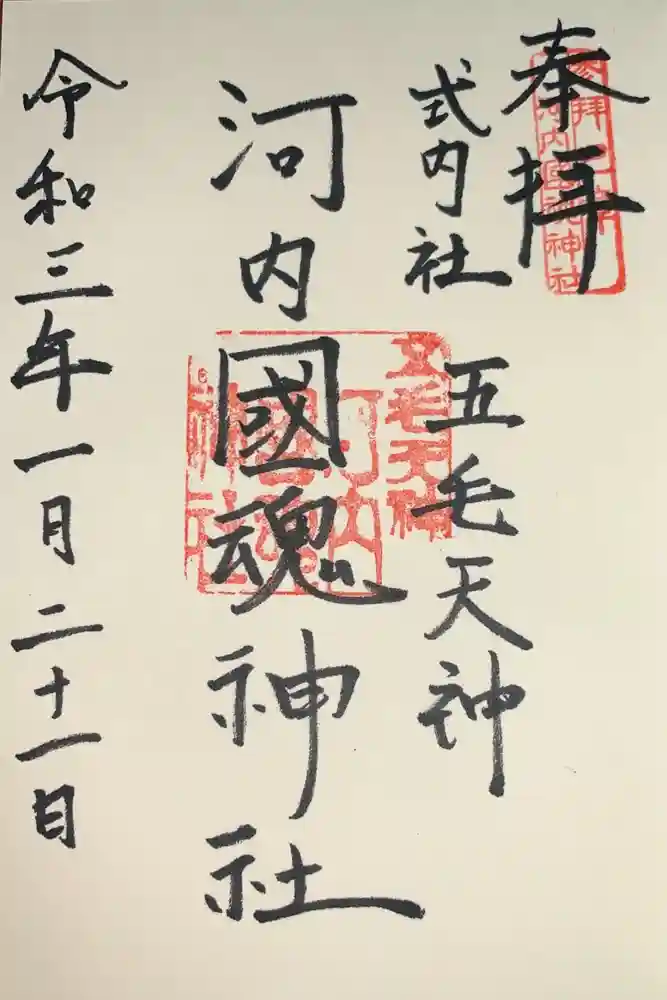 奉拝
式内社
五毛天神
河内國魂神社
令和三年一月二十一日
五毛天神
河内國魂神社